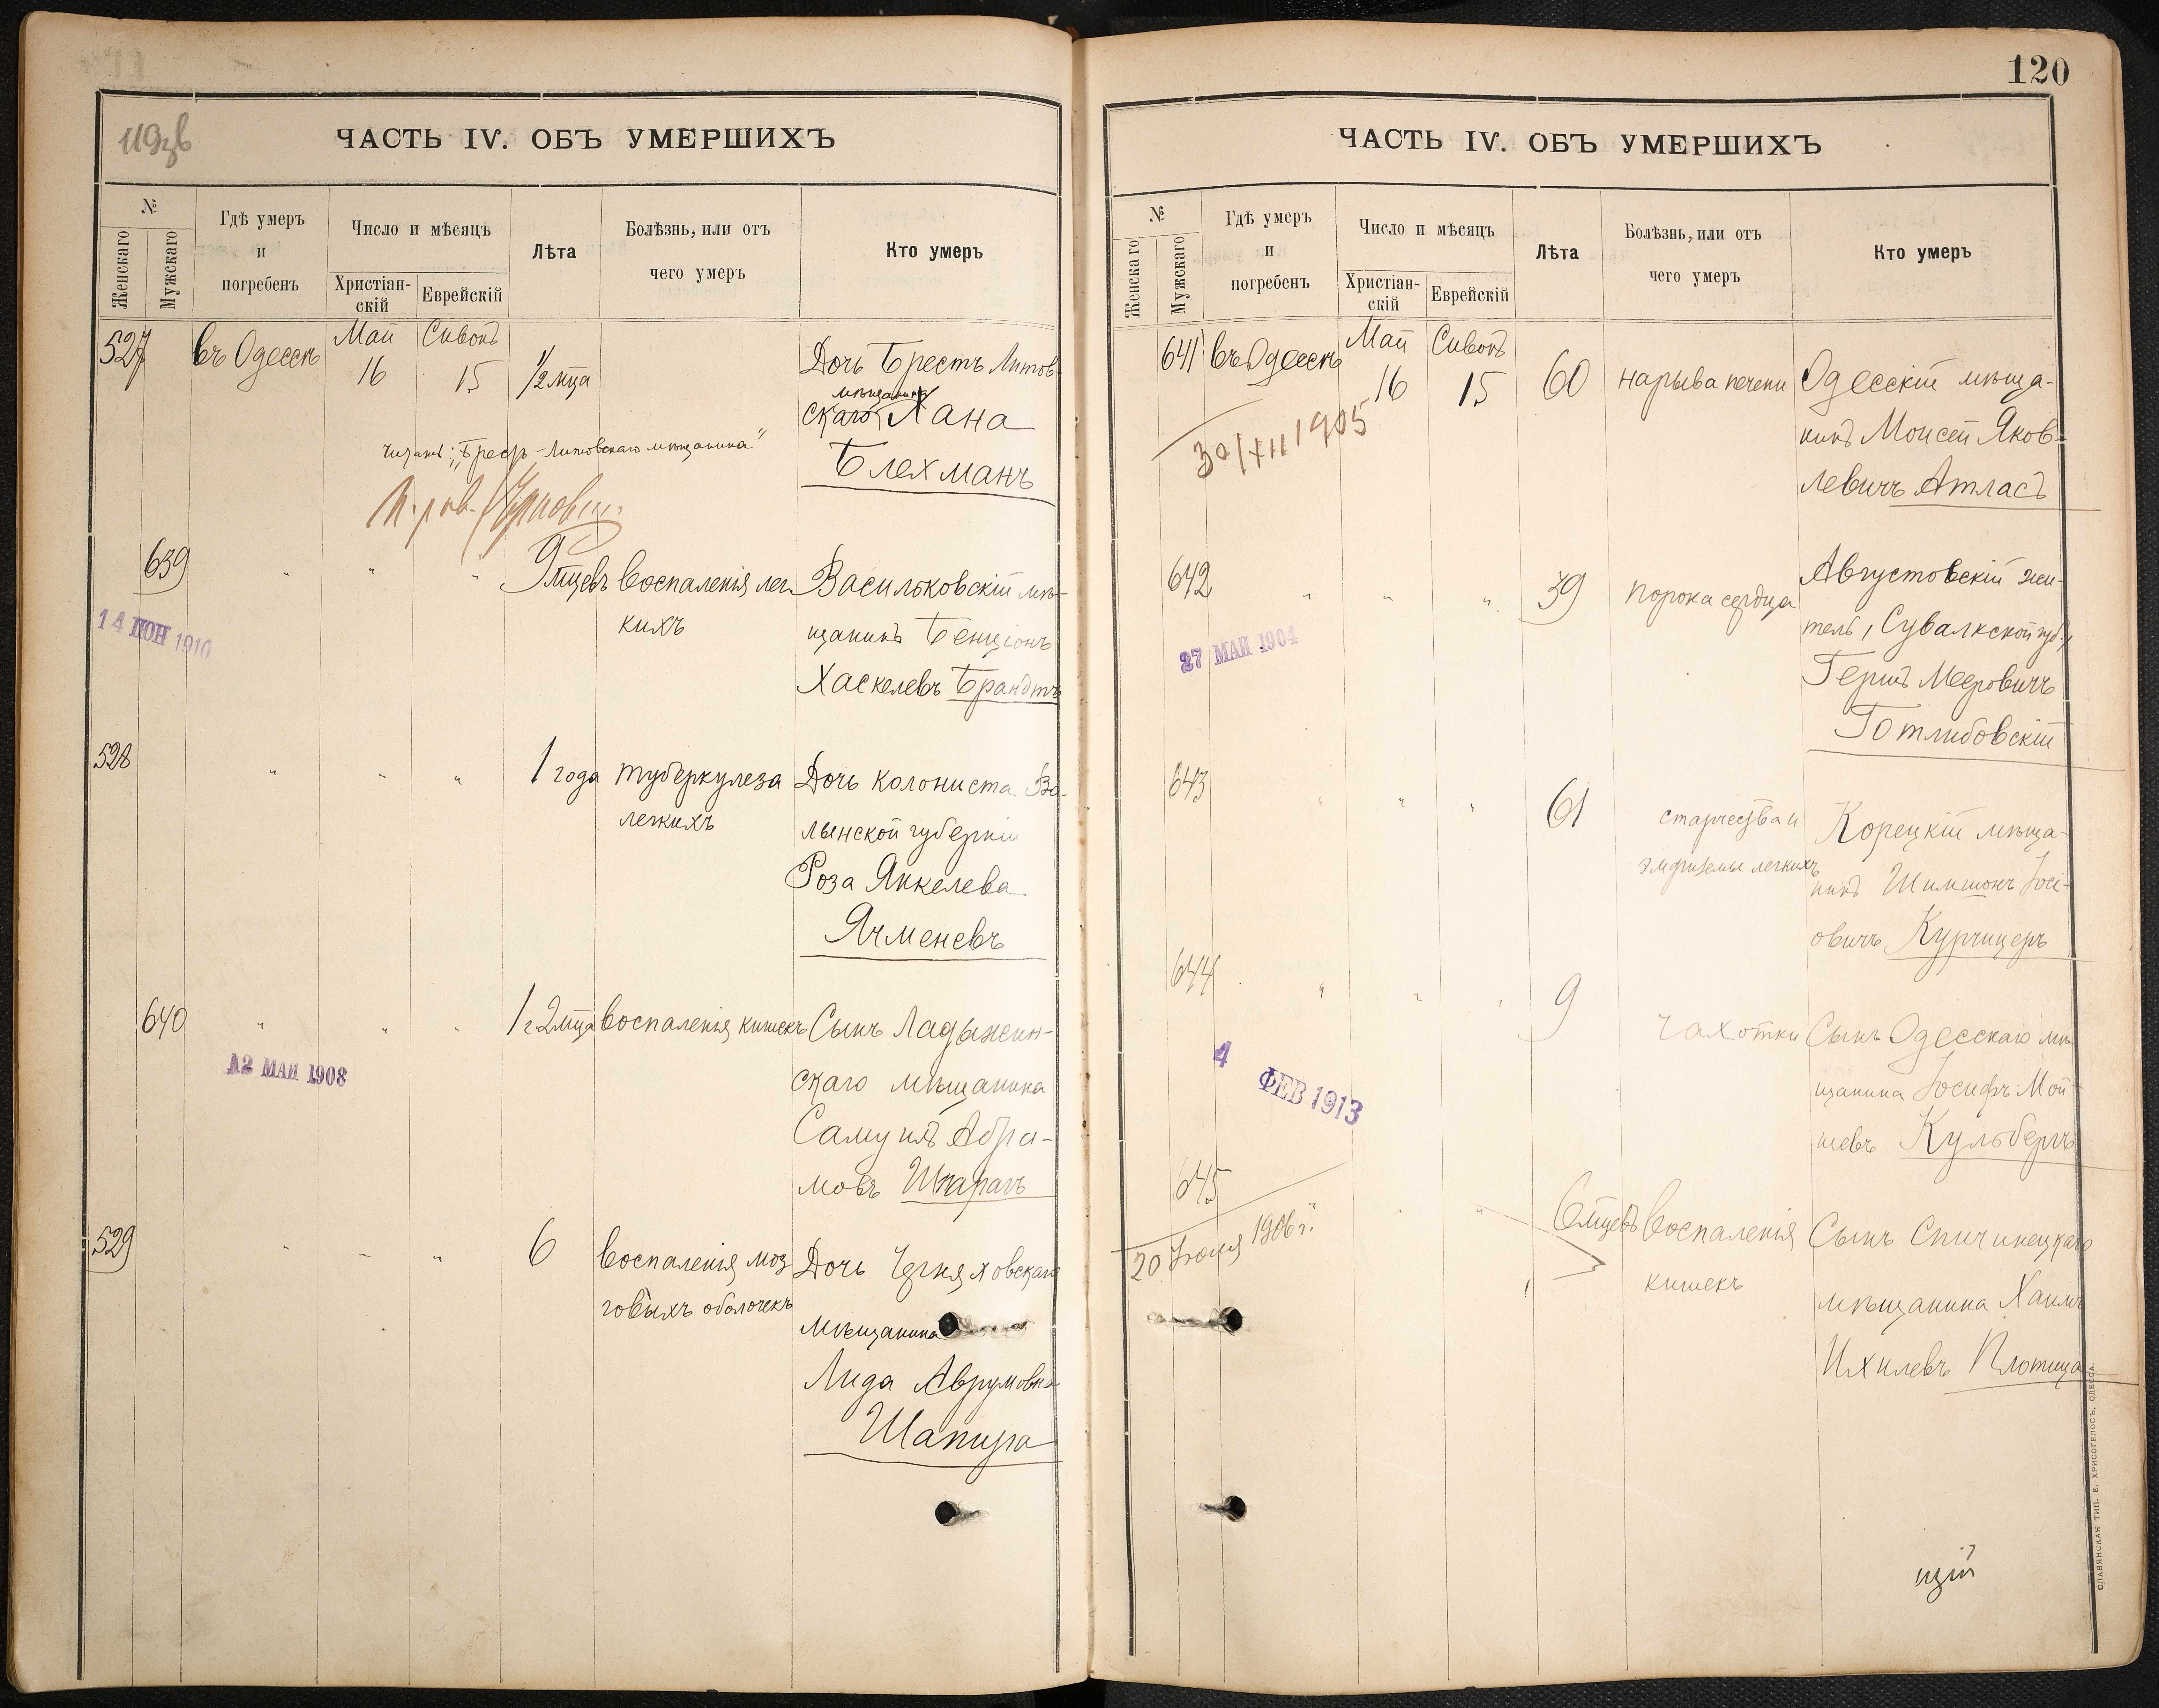 119зв
ЧАСТЬ IV. ОБЪ УМЕРШИХЪ
№
Женскаго
Мужскаго
Гдѣ умеръ
и
погребенъ
Число и мѣсяцъ
Христіан-
скій
Еврейскій
Лѣта
Болѣзнь, или отъ
чего умеръ
Кто умеръ
527
въ Одессѣ
Май
16
Сивонъ
15
1/2 мца
Дочь Брестъ Литов-
мѣщанина
скаго Хана
Блехманъ
читать: „Брестъ-Литовскаго мѣщанина"
639
"
"
"
9 мцевъ
воспаленія лег-
кихъ
Васильковскій мѣ-
щанинъ Бенціонъ
Хаскелевъ Брандтъ
14 ІЮН 1910
528
"
"
"
1 года
туберкулеза
легкихъ
Дочь колониста Во-
лынской губерніи
Роза Янкелева
Ячменевъ
640
"
"
"
1 г 2 мца
воспаленія кишекъ
Сынъ Ладыжен-
скаго мѣщанина
Самуилъ Абра-
мовъ Шпарагъ
12 МАЙ 1908
529
"
"
"
6
воспаленія моз-
говыхъ оболочекъ
Дочь Черняховскаго
мѣщанина
Лида Аврумовна
Шапира
120
ЧАСТЬ IV. ОБЪ УМЕРШИХЪ
№
Женскаго
Мужскаго
Гдѣ умеръ
и
погребенъ
Число и мѣсяцъ
Христіан-
скій
Еврейскій
Лѣта
Болѣзнь, или отъ
чего умеръ
Кто умеръ
641
въ Одессѣ
Май
16
Сивонъ
15
60
нарыва печени
Одесскій мѣща-
нинъ Моисей Яков-
левичъ Атласъ
30/XII 1905
642
"
"
"
39
порока сердца
Августовскій жи-
тель, Сувалкской губ.,
Гершъ Мееровичъ
Готлибовскій
27 МАЙ 1904
643
"
"
"
61
старчества и
эмфиземы легкихъ
Корецкій мѣща-
нинъ Шимшонъ Іосі-
овичъ Курчицеръ
644
"
"
"
9
чахотки
Сынъ Одесскаго мѣ-
щанина Іосифъ Мой-
шевъ Кульбергъ
4 ФЕВ 1913
645
"
"
6 мцевъ
воспаленія
кишекъ
Сынъ Спичинецкаго
мѣщанина Хаимъ
Ихилевъ Плотица
20 Іюля 1906 г.
цій
СЛАВЯНСКАЯ ТИП. Е. ХРИСОГЕЛОСЪ, ОДЕССА.